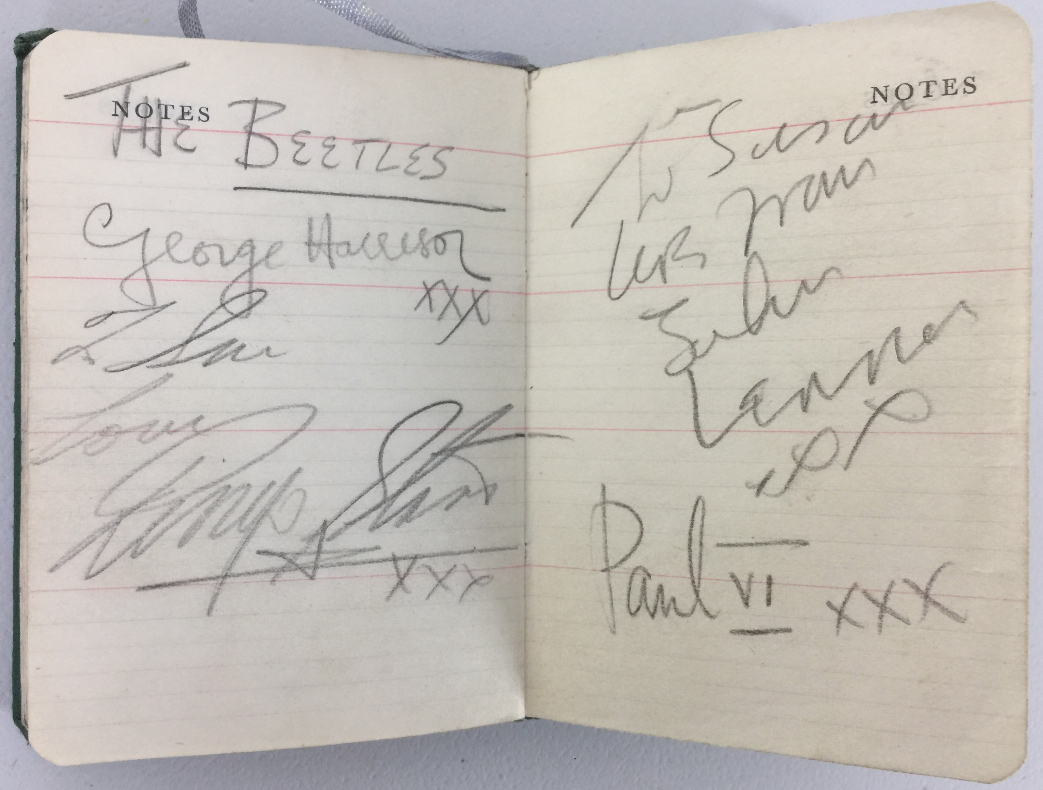 NOTES
THE BEETLES
George Harrison
xxx
To Susan
Love
Ringo Starr
xxx
NOTES
To Susan
love from
John
Lennon
xxx
Paul VI xxx